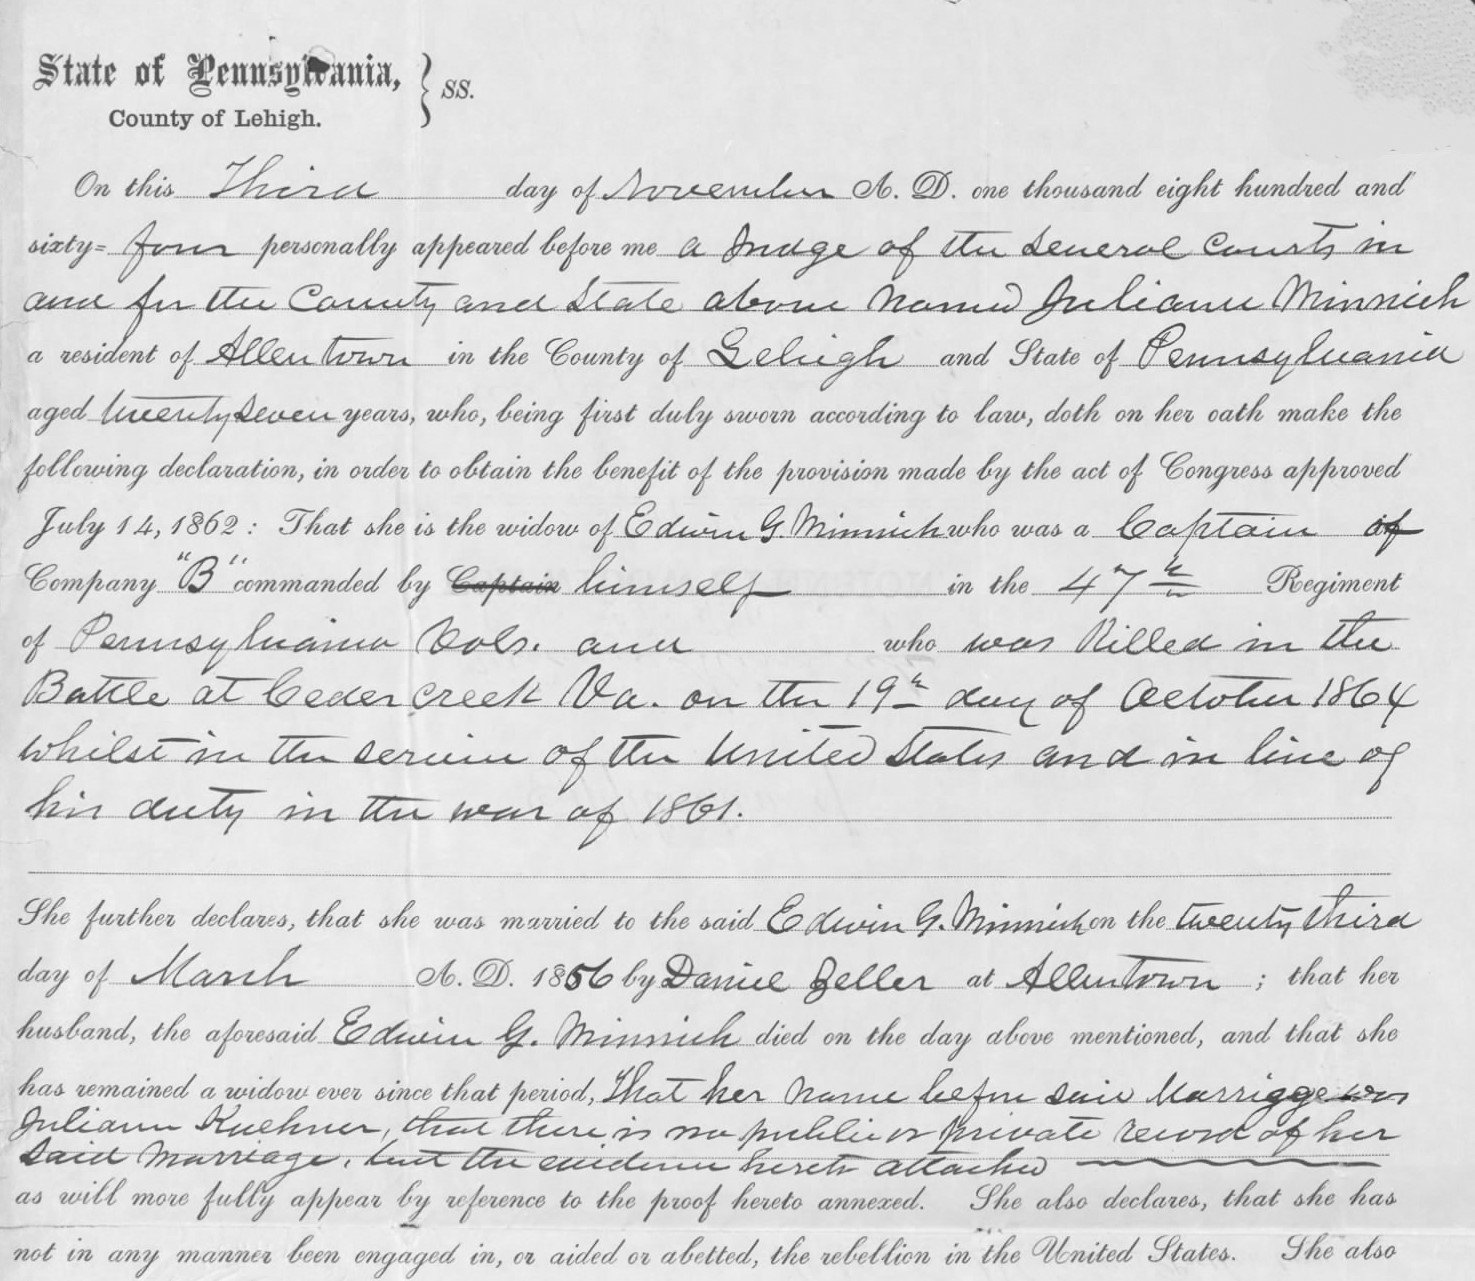 State of Pennsylvania,
County of Lehigh. } SS.
On this Third day of November A. D. one thousand eight hundred and
sixty= four personally appeared before me a Judge of the several courts in
and for the County and State above named Juliann Minnich
a resident of Allentown in the County of Lehigh and State of Pennsylvania
aged twenty seven years, who, being first duly sworn according to law, doth on her oath make the
following declaration, in order to obtain the benefit of the provision made by the act of Congress approved
July 14, 1862: That she is the widow of Edwin G. Minnich who was a Captain of
Company "B" commanded by Captain himself in the 47th Regiment
of Pennsylvania Vols. and who was Killed in the
Battle at Ceder creek Va. on the 19th day of October 1864
whilst in the service of the United States and in line of
his duty in the war of 1861.
She further declares, that she was married to the said Edwin G. Minnich on the twenty third
day of March A. D. 1856 by Daniel Zeller at Allentown ; that her
husband, the aforesaid Edwin G. Minnich died on the day above mentioned, and that she
has remained a widow ever since that period, That her name before said Marriage was
Juliann Kuehner, that there is no public or private record of her
said Marriage, but the evidence hereto attached
as will more fully appear by reference to the proof hereto annexed. She also declares, that she has
not in any manner been engaged in, or aided or abetted, the rebellion in the United States. She also